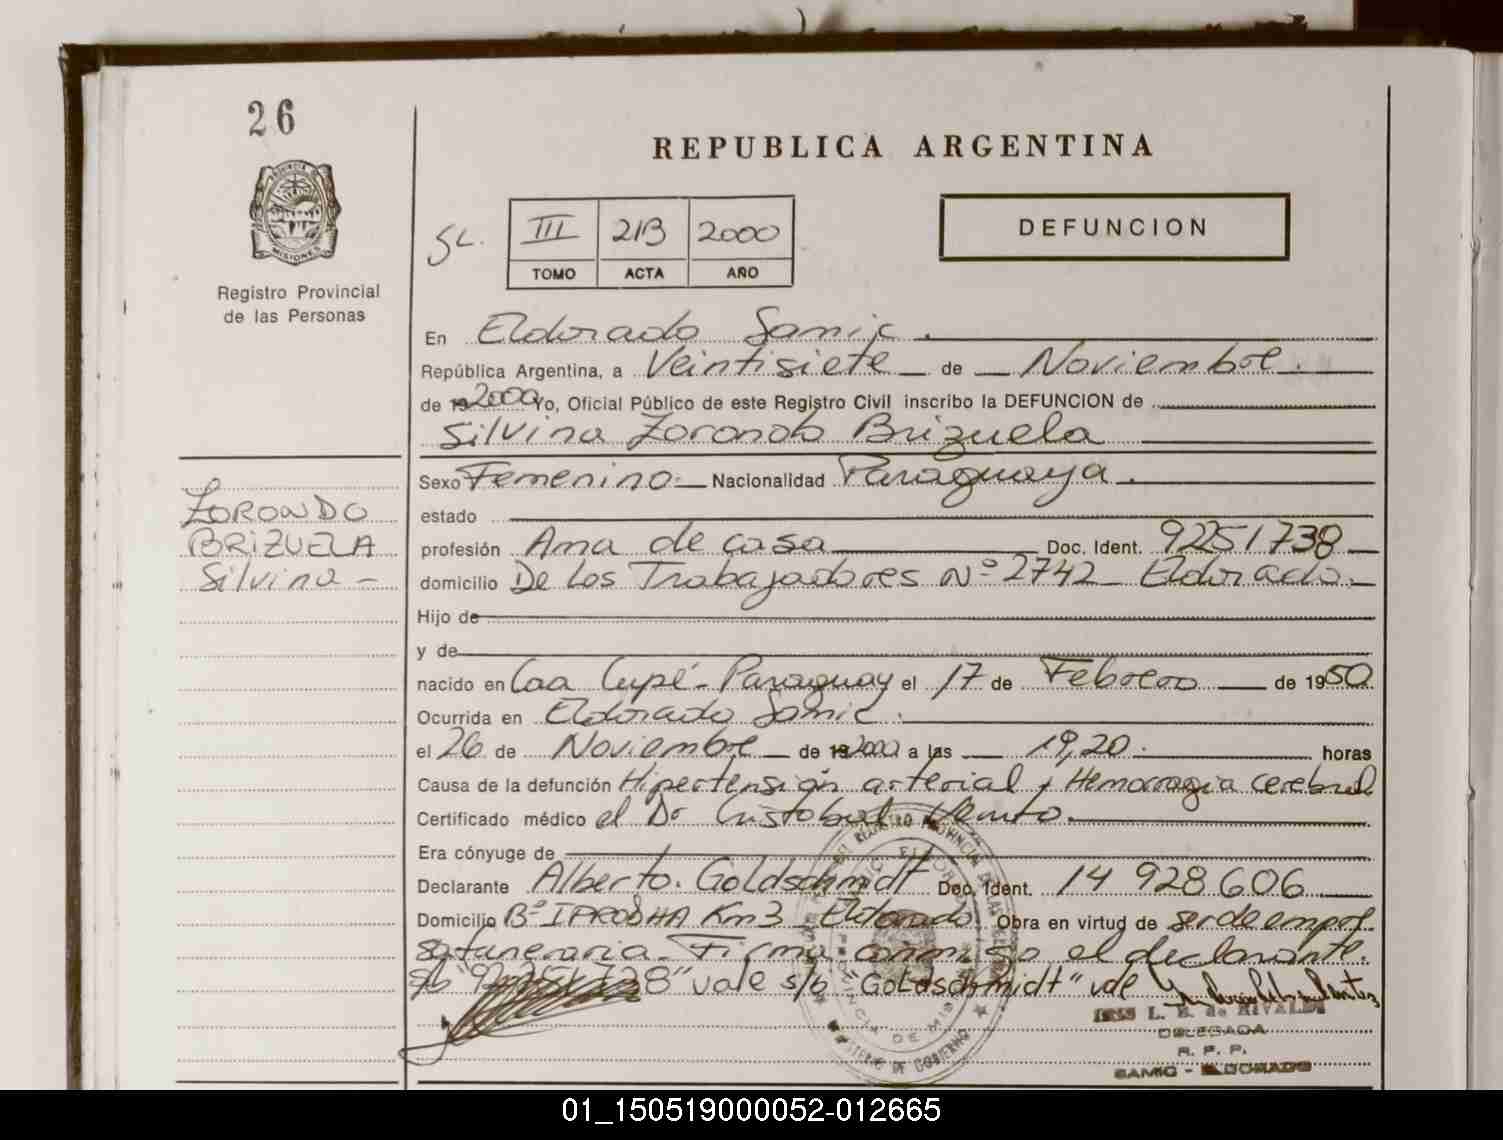 26
REPUBLICA ARGENTINA
DEFUNCION
SL.
III 21B 2000
TOMO ACTA AÑO
MISIONES
Registro Provincial
de las Personas
En Eldorado Samic.
República Argentina, a Veintisiete de Noviembre.
de 19 2000 Yo, Oficial Público de este Registro Civil inscribo la DEFUNCION de
Silvina Zorondo Brizuela
Sexo Femenino Nacionalidad Paraguaya.
ZORONDO
BRIZUELA
Silvina -
estado
profesión Ama de casa Doc. Ident. 9251738
domicilio De Los Trabajadores Nº 2742 Eldorado.
Hijo de
y de
nacido en Caa Cupé - Paraguay el 17 de Febrero de 1950
Ocurrida en Eldorado Samic.
el 26 de Noviembre de 19 2000 a las 19,20. horas
Causa de la defunción Hipertensión arterial y Hemorragia cerebral
Certificado médico el Dr Cristobal
Era cónyuge de
Declarante Alberto. Goldschmidt Doc. Ident. 14 928 606
Domicilio Bº IPRODHA Km 3 Eldorado. Obra en virtud de ser de empre
sa funeraria. Firma conmigo el declarante.
s/b "9251738" vale s/b "Goldschmidt" vale
IRIS L. B. de RIVALDI
DELEGADA
R. P. P.
SAMIC - ELDORADO
REGISTRO PROVINCIAL DE LAS PERSONAS
MINISTERIO DE GOBIERNO
PROVINCIA DE MISIONES
01_150519000052-012665